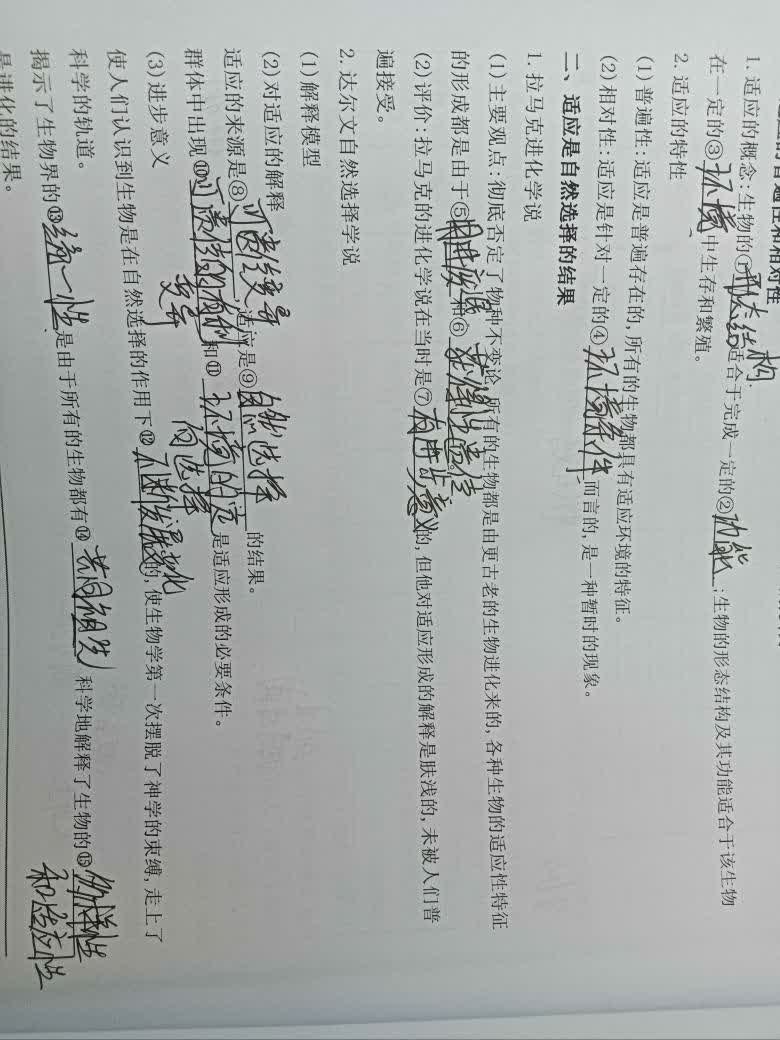 普遍性和相对性
1. 适应的概念:生物的①形态结构适合于完成一定的②功能;生物的形态结构及其功能适合于该生物
在一定的③环境中生存和繁殖。
2. 适应的特性
(1)普遍性:适应是普遍存在的,所有的生物都具有适应环境的特征。
(2)相对性:适应是针对一定的④环境条件而言的,是一种暂时的现象。
二、适应是自然选择的结果
1. 拉马克进化学说
(1)主要观点:彻底否定了物种不变论,所有的生物都是由更古老的生物进化来的,各种生物的适应性特征
的形成都是由于⑤用进废退和⑥获得性遗传。
(2)评价:拉马克的进化学说在当时是⑦有进步意义的,但他对适应形成的解释是肤浅的,未被人们普
遍接受。
2. 达尔文自然选择学说
(1)解释模型
(2)对适应的解释
适应的来源是⑧可遗传变异,适应是⑨自然选择的结果。
群体中出现⑩可遗传的有利变异和⑪环境的定向选择是适应形成的必要条件。
(3)进步意义
使人们认识到生物是在自然选择的作用下⑫不断发展变化的,使生物学第一次摆脱了神学的束缚,走上了
科学的轨道。
揭示了生物界的⑬统一性是由于所有的生物都有⑭共同祖先 科学地解释了生物的⑮多样性和适应性
是进化的结果。